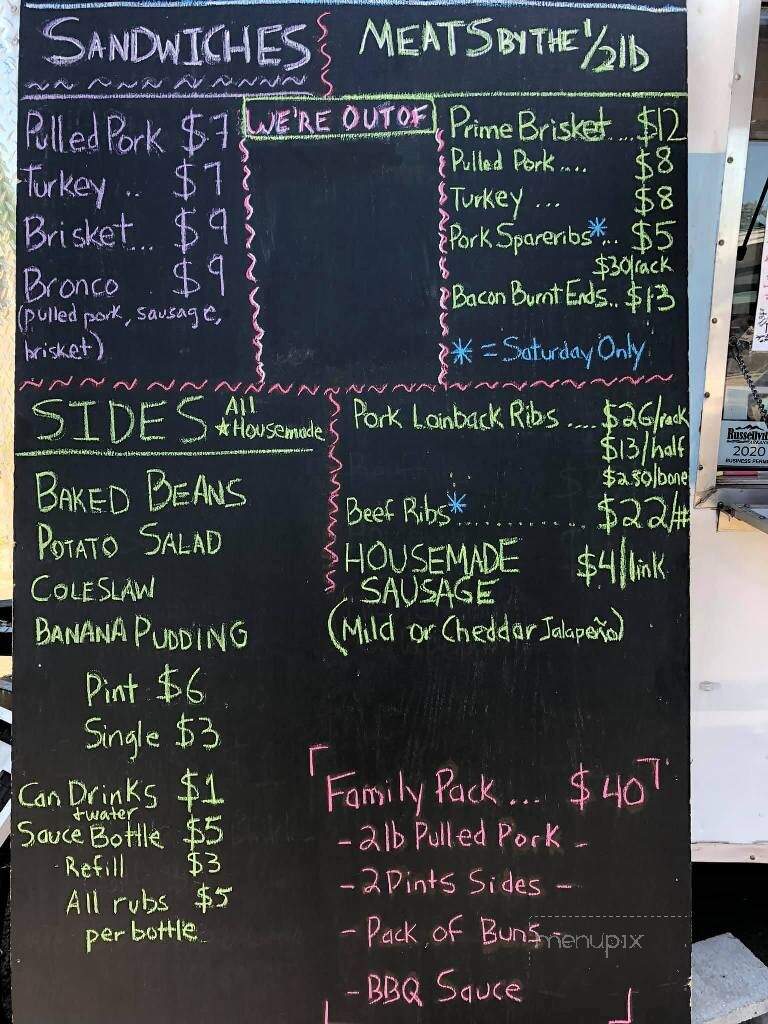 SANDWICHES
MEATS BY THE 1/2 lb
Pulled Pork $7
Turkey .. $7
Brisket.. $9
Bronco . $9
(pulled pork, sausage,
brisket)
WE'RE OUT OF
Prime Brisket.... $12
Pulled Pork.... $8
Turkey ... $8
Pork Spareribs*.. $5
$30/rack
Bacon Burnt Ends.. $13
* = Saturday Only
SIDES All
★Housemade
BAKED BEANS
POTATO SALAD
COLESLAW
BANANA PUDDING
Pint $6
Single $3
Can Drinks $1
+water
Sauce Bottle $5
- Refill $3
All rubs $5
per bottle
Pork Loinback Ribs ..... $26/rack
$13/half
$2.50/bone
Beef Ribs*............ $22/#
HOUSEMADE $4/link
SAUSAGE
(Mild or Cheddar Jalapeño)
Family Pack ... $40
- 2lb Pulled Pork -
- 2 Pints Sides -
- Pack of Buns -
- BBQ Sauce
menupix
Russellville
2020